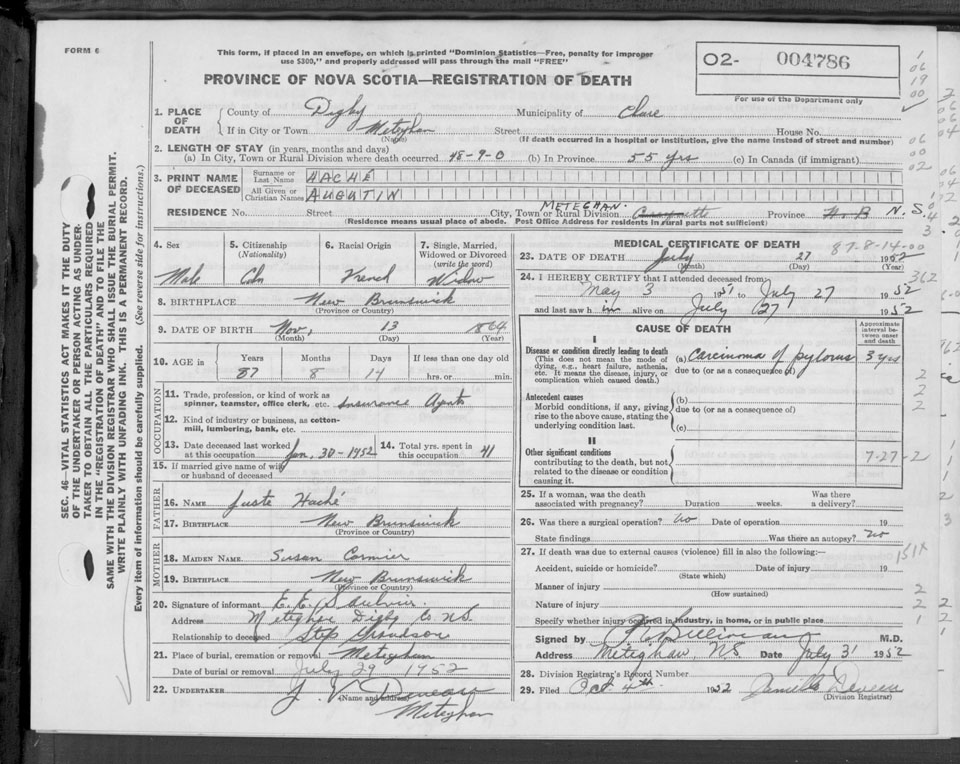 FORM 6
This form, if placed in an envelope, on which is printed "Dominion Statistics—Free, penalty for improper
use $300," and properly addressed will pass through the mail "FREE"
PROVINCE OF NOVA SCOTIA—REGISTRATION OF DEATH
02- 004786
For use of the Department only
1. PLACE OF DEATH
County of Digby Municipality of Clare
If in City or Town Meteghan Street House No.
(Name) (If death occurred in a hospital or institution, give the name instead of street and number)
2. LENGTH OF STAY (in years, months and days)
(a) In City, Town or Rural Division where death occurred 48-9-0 (b) In Province 55 yrs (c) In Canada (if immigrant)
3. PRINT NAME OF DECEASED
Surname or Last Name HACHÉ
All Given or Christian Names AUGUTIN
RESIDENCE No. Street City, Town or Rural Division METEGHAN. Province N.B N.S.
(Residence means usual place of abode. Post Office Address for residents in rural parts not sufficient)
4. Sex
Male
5. Citizenship
(Nationality)
Cdn
6. Racial Origin
French
7. Single, Married, Widowed or Divorced
(write the word)
Widow
8. BIRTHPLACE New Brunswick
(Province or Country)
9. DATE OF BIRTH Nov. 13 1864
(Month) (Day) (Year)
10. AGE in
Years Months Days If less than one day old
87 8 14 hrs. or min.
OCCUPATION
11. Trade, profession, or kind of work as
spinner, teamster, office clerk, etc. Insurance Agent
12. Kind of industry or business, as cotton-
mill, lumbering, bank, etc.
13. Date deceased last worked
at this occupation Jan. 30-1952
14. Total yrs. spent in
this occupation 41
15. If married give name of wife
or husband of deceased
FATHER
16. NAME Juste Haché
17. BIRTHPLACE New Brunswick
(Province or Country)
MOTHER
18. MAIDEN NAME. Susan Cormier
19. BIRTHPLACE New Brunswick
(Province or Country)
20. Signature of informant E. E. Saulnier.
Address Meteghan Digby Co NS.
Relationship to deceased Step Grandson
21. Place of burial, cremation or removal Meteghan
Date of burial or removal July 29 1952
22. UNDERTAKER J. V. Deveau
(Name and Address)
Meteghan
MEDICAL CERTIFICATE OF DEATH
87-8-14-00
23. DATE OF DEATH July 27 1952
(Month) (Day) (Year)
24. I HEREBY CERTIFY that I attended deceased from
May 3 1951 to July 27 1952
and last saw him alive on July 27 1952
CAUSE OF DEATH
Approximate interval between onset and death
I
Disease or condition directly leading to death
(This does not mean the mode of
dying, e.g., heart failure, asthenia,
etc. It means the disease, injury, or
complication which caused death.)
(a) Carcinoma of pylorus 3 yrs
due to (or as a consequence of)
Antecedent causes
Morbid conditions, if any, giving
rise to the above cause, stating the
underlying condition last.
(b)
due to (or as a consequence of)
(c)
II
Other significant conditions
contributing to the death, but not
related to the disease or condition
causing it.
7-27-2
25. If a woman, was the death
associated with pregnancy? Duration weeks. Was there
a delivery?
26. Was there a surgical operation? No Date of operation 19
State findings Was there an autopsy? No
27. If death was due to external causes (violence) fill in also the following:— 151x
Accident, suicide or homicide? Date of injury 19
(State which)
Manner of injury
(How sustained)
Nature of injury
Specify whether injury occurred in industry, in home, or in public place
Signed by M.D.
Address Meteghan, N.S. Date July 31 1952
28. Division Registrar's Record Number
29. Filed Oct 4th 1952
(Division Registrar)
SEC. 46—VITAL STATISTICS ACT MAKES IT THE DUTY
OF THE UNDERTAKER OR PERSON ACTING AS UNDER-
TAKER TO OBTAIN ALL THE PARTICULARS REQUIRED
IN THE "REGISTRATION OF DEATH" AND TO FILE THE
SAME WITH THE DIVISION REGISTRAR WHO SHALL ISSUE THE BURIAL PERMIT.
WRITE PLAINLY WITH UNFADING INK. THIS IS A PERMANENT RECORD.
Every item of information should be carefully supplied. (See reverse side for instructions.)